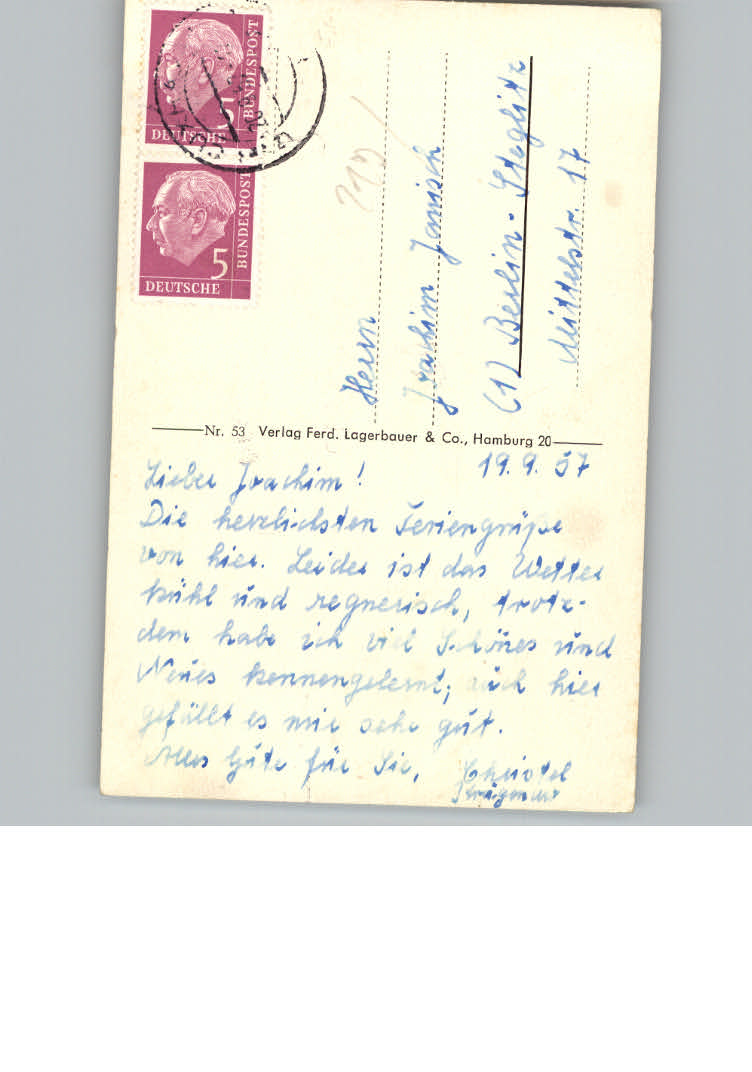 DEUTSCHE
BUNDESPOST
5
DEUTSCHE
BUNDESPOST
5
Herrn
Joachim Janisch
(1) Berlin-Steglitz
Mittelstr. 17
Nr. 53 Verlag Ferd. Lagerbauer & Co., Hamburg 20
19.9.57
Lieber Joachim!
Die herzlichsten Feriengrüße
von hier. Leider ist das Wetter
kühl und regnerisch, trotz-
dem habe ich viel Schönes und
Neues kennengelernt; auch hier
gefällt es mir sehr gut.
Alles Gute für Sie, Christel